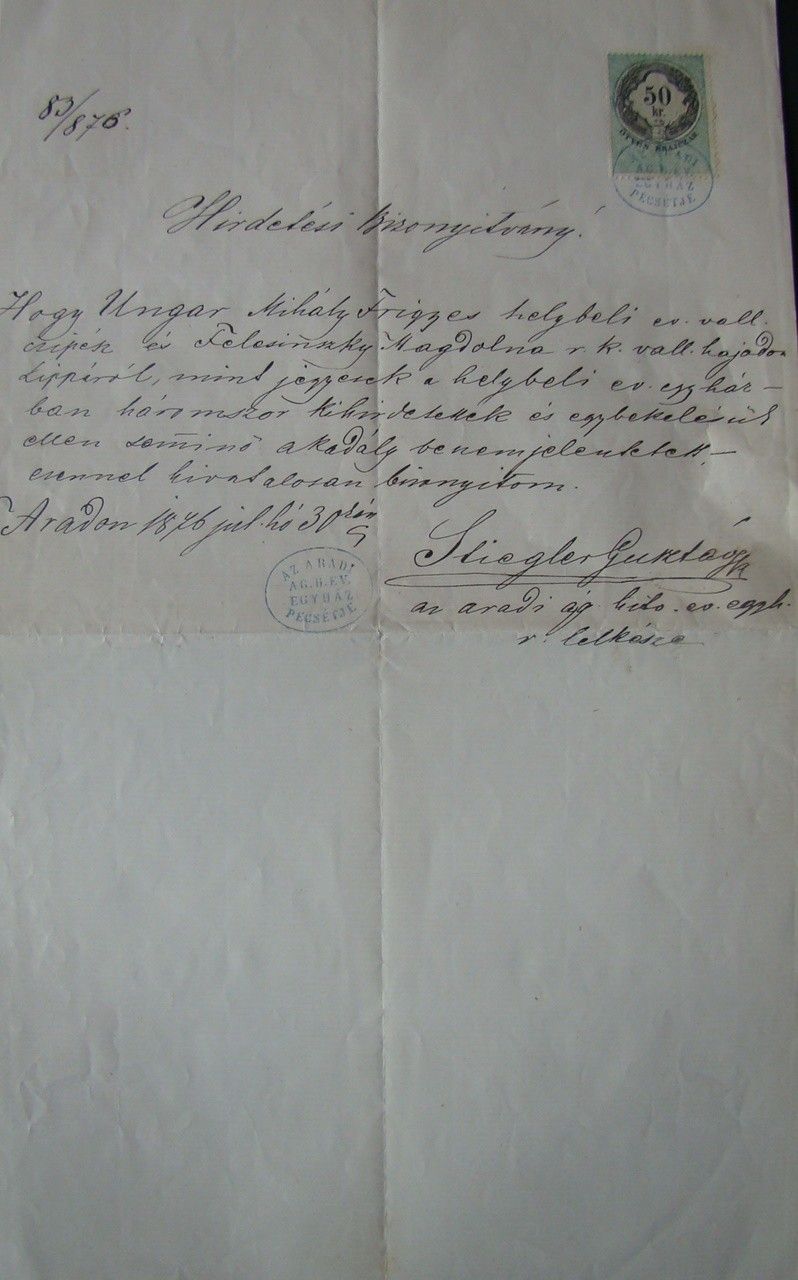 83/876.
50
kr.
ÖTVEN KRAJCZÁR
AZ ARADI
ÁG. H. EV.
EGYHÁZ
PECSÉTJE
Hirdetési Bizonyitvány.
Hogy Ungar Mihály Frigyes helybeli ev. vall.
és Felesinszky Magdolna r. k. vall. hajadon
Lippáról, mint jegyesek a helybeli ev. egyház-
ban háromszor kihirdetettek és egybekelésük
ellen semminő akadály be nem jelentetett –
ezennel hivatalosan bizonyitom.
Aradon 1876 jul. hó 30án
Stiegler Gusztáv
AZ ARADI
ÁG. H. EV.
EGYHÁZ
PECSÉTJE
az aradi ág. hitv. ev. egyh.
r. lelkésze